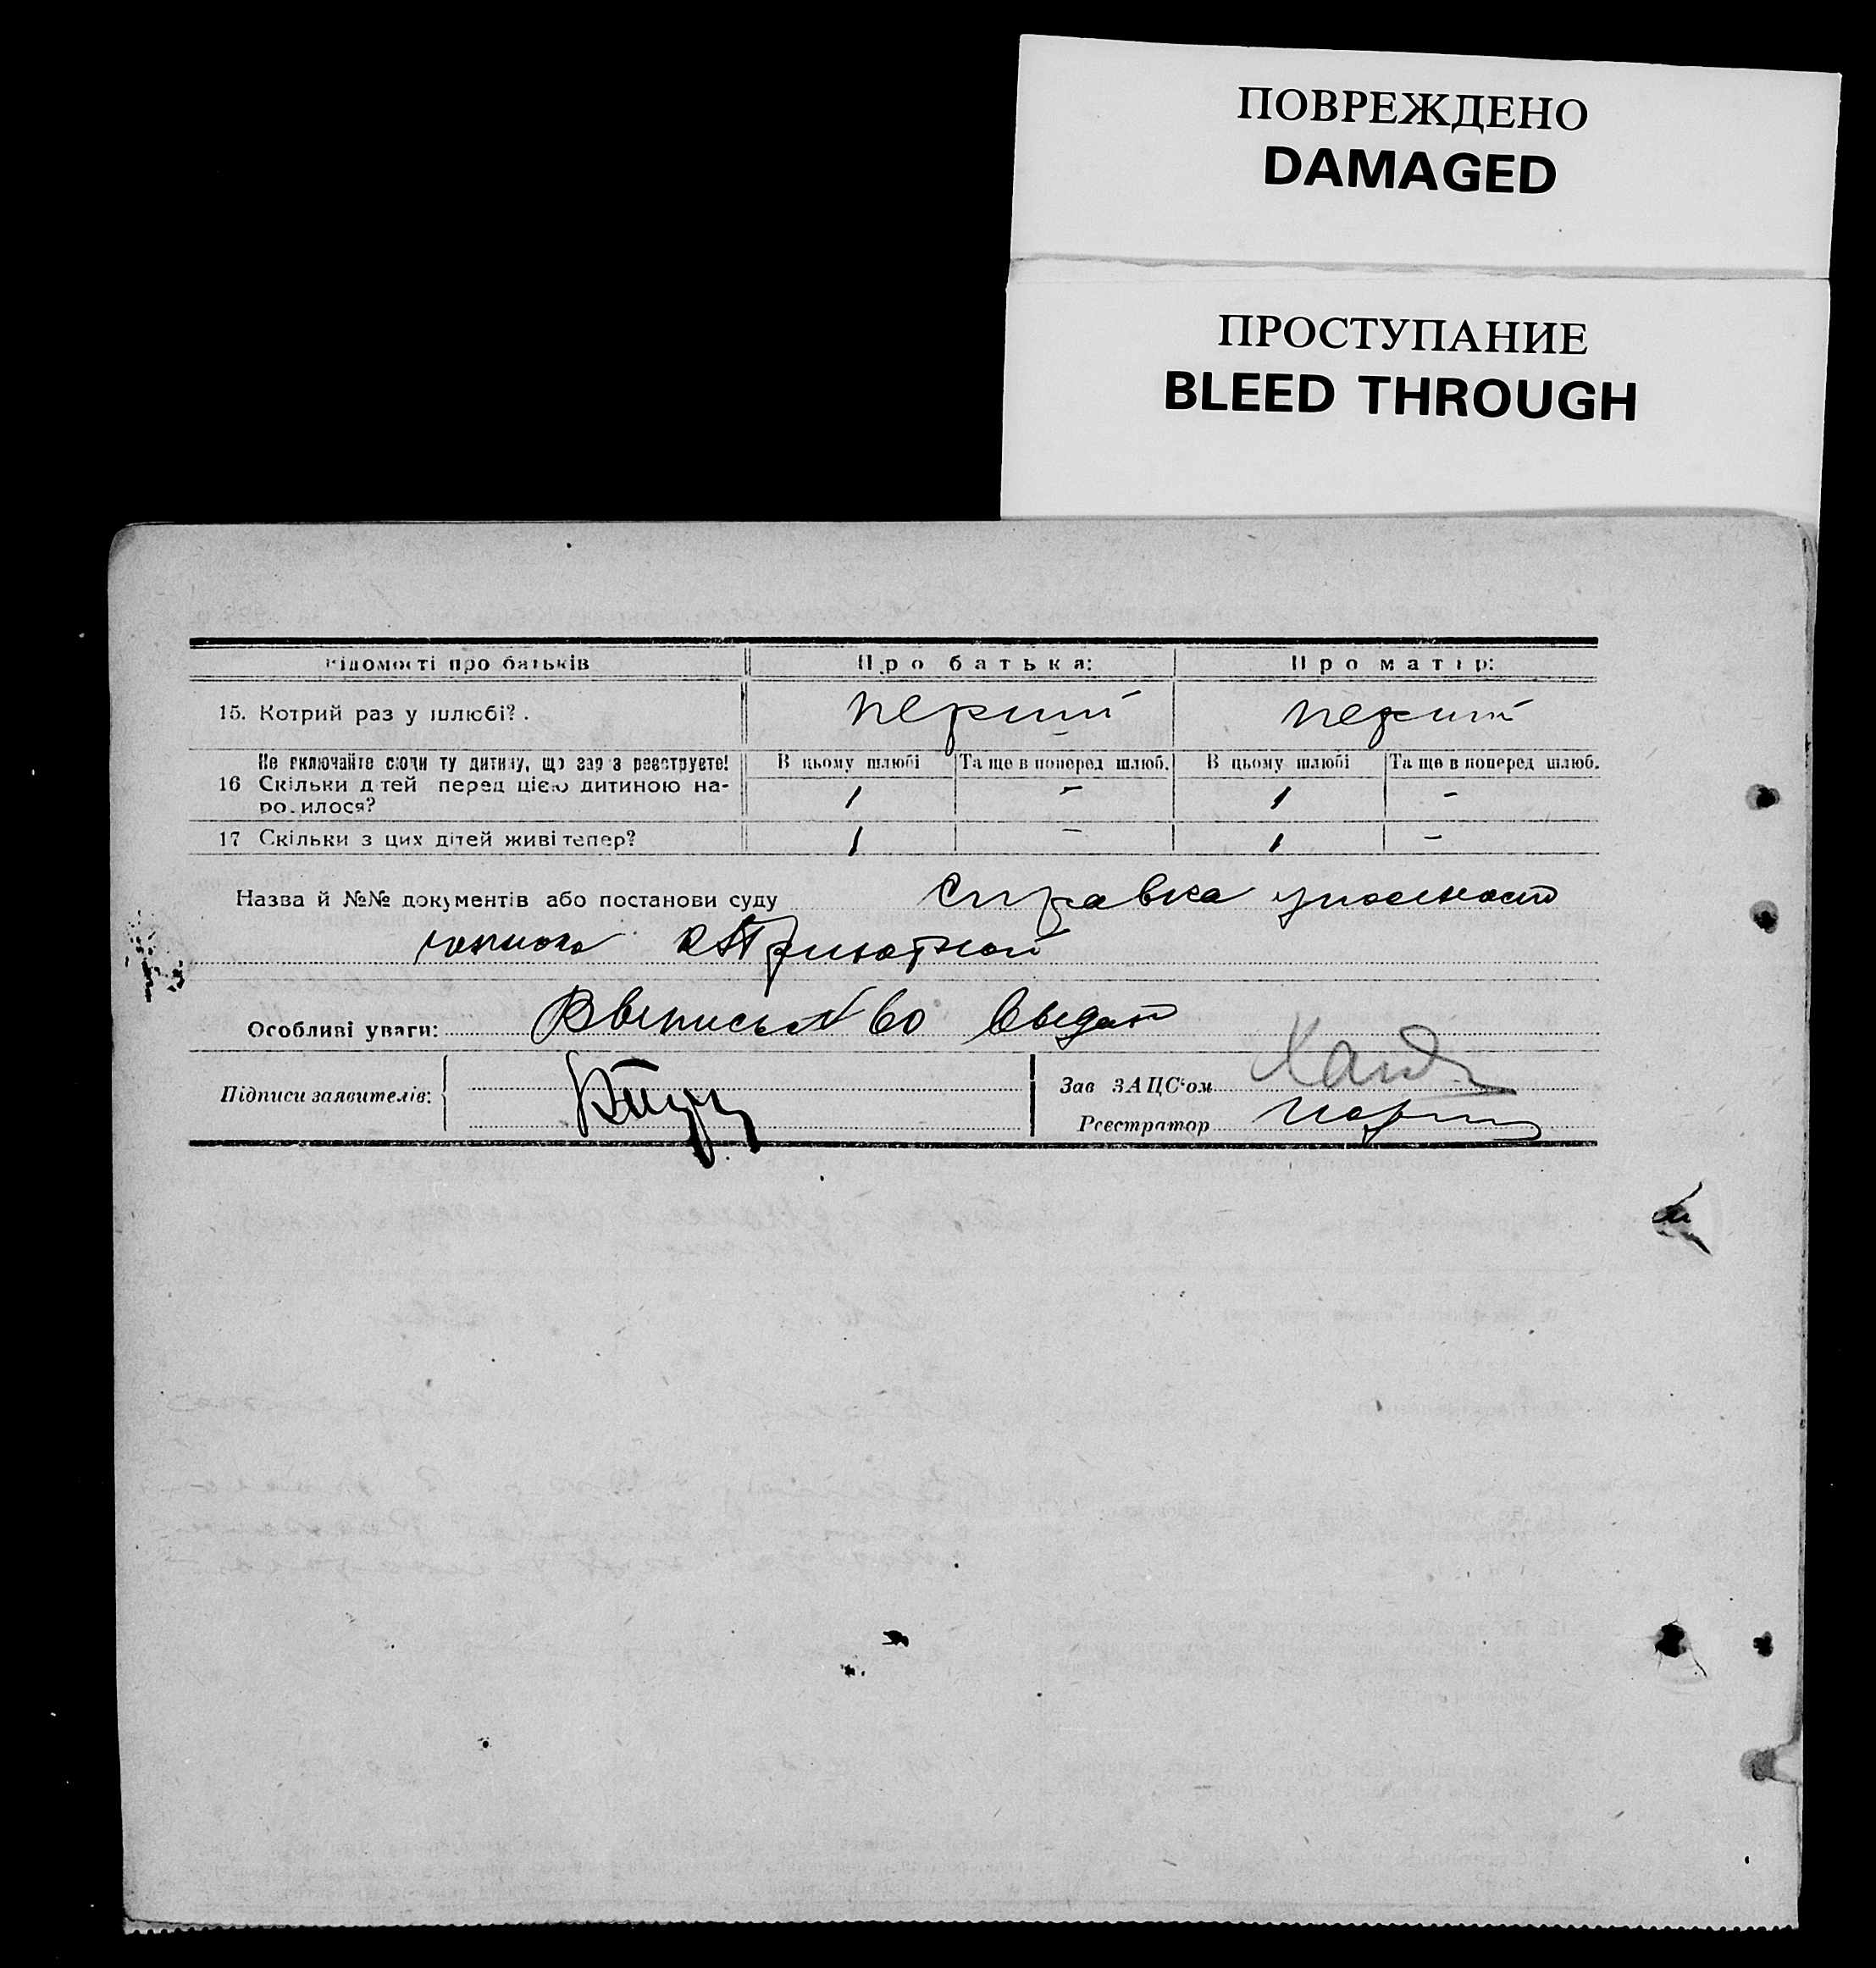 ПОВРЕЖДЕНО
DAMAGED
ПРОСТУПАНИЕ
BLEED THROUGH
Відомості про батьків
Про батька:
Про матір:
15. Котрий раз у шлюбі?.
перший
перший
Не включайте сюди ту дитину, що зараз реєструєте!
В цьому шлюбі
Та ще в поперед шлюб.
В цьому шлюбі
Та ще в поперед шлюб.
16 Скільки дітей перед цією дитиною на-
родилося?
1
-
1
-
17 Скільки з цих дітей живі тепер?
1
-
1
-
Назва й №№ документів або постанови суду
Справка
Особливі уваги:
№ 60
Підписи заявителів:
Зав ЗАЦС‘ом
Реєстратор